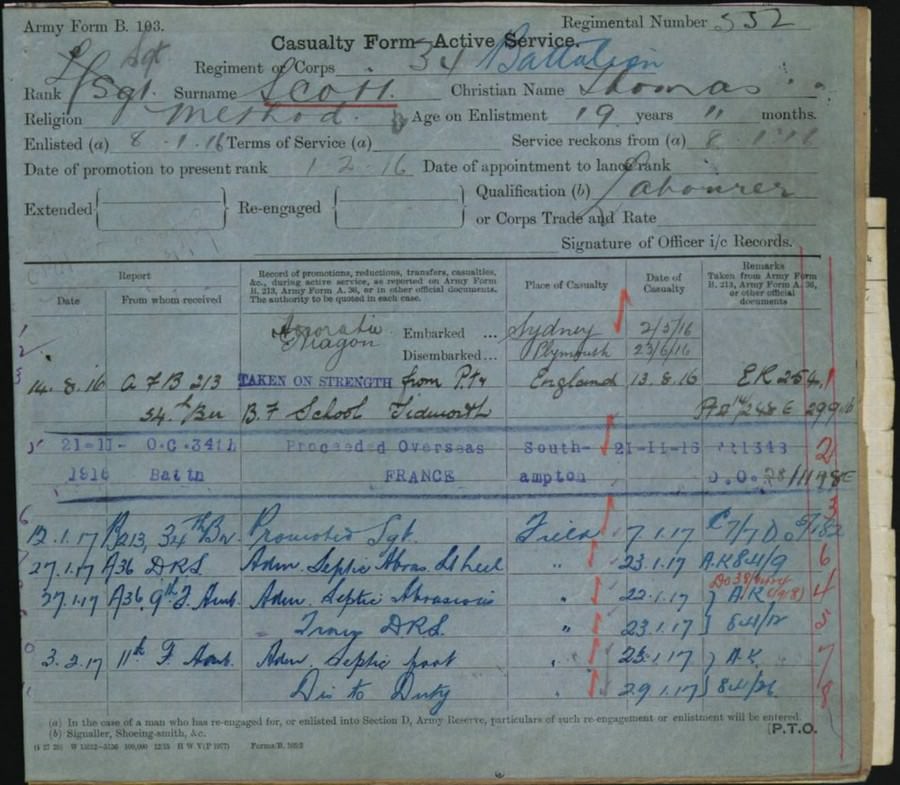 Army Form B. 103.
Regimental Number 532
Casualty Form—Active Service.
L/Sgt
Regiment or Corps 34 Battalion
Rank Sgt. Surname Scott Christian Name Thomas
Religion Method. Age on Enlistment 19 years " months.
Enlisted (a) 8.1.16 Terms of Service (a) Service reckons from (a) 8.1.16
Date of promotion to present rank 1 2 16 Date of appointment to lance rank
Extended Re-engaged Qualification (b) Labourer
or Corps Trade and Rate
Signature of Officer i/c Records.
Report
Date From whom received
Record of promotions, reductions, transfers, casualties, &c., during active service, as reported on Army Form B. 213, Army Form A. 36, or in other official documents. The authority to be quoted in each case.
Place of Casualty
Date of Casualty
Remarks
Taken from Army Form B. 213, Army Form A. 36, or other official documents
Embarked ... Sydney 2/5/16
Disembarked ... Plymouth 23/6/16
14.8.16 A F B 213 TAKEN ON STRENGTH from England 13.8.16 ER 254 1
34th Bn B.F. School Tidworth
21-11- O.C. 34th Proceeded Overseas South- 21-11-16 1348 2
1916 Battn FRANCE ampton D.O. 28/11
12.1.17 B213, 34th Bn Promoted Sgt. Field 7.1.17 3
27.1.17 A36 DRS Adm. Septic Abras. Lt heel " 23.1.17 A.K 84/9 6
27.1.17 A36 9th F. Amb. Adm. Septic Abrasions " 22.1.17 } A.K 4
DRS. " 23.1.17 } 5
3.2.17 11th F. Amb. Adm. Septic foot " 23.1.17 } A.K. 7
Dis to Duty " 29.1.17 } 84/26 8
(a) In the case of a man who has re-engaged for, or enlisted into Section D, Army Reserve, particulars of such re-engagement or enlistment will be entered.
(b) Signaller, Shoeing-smith, &c.
[P.T.O.